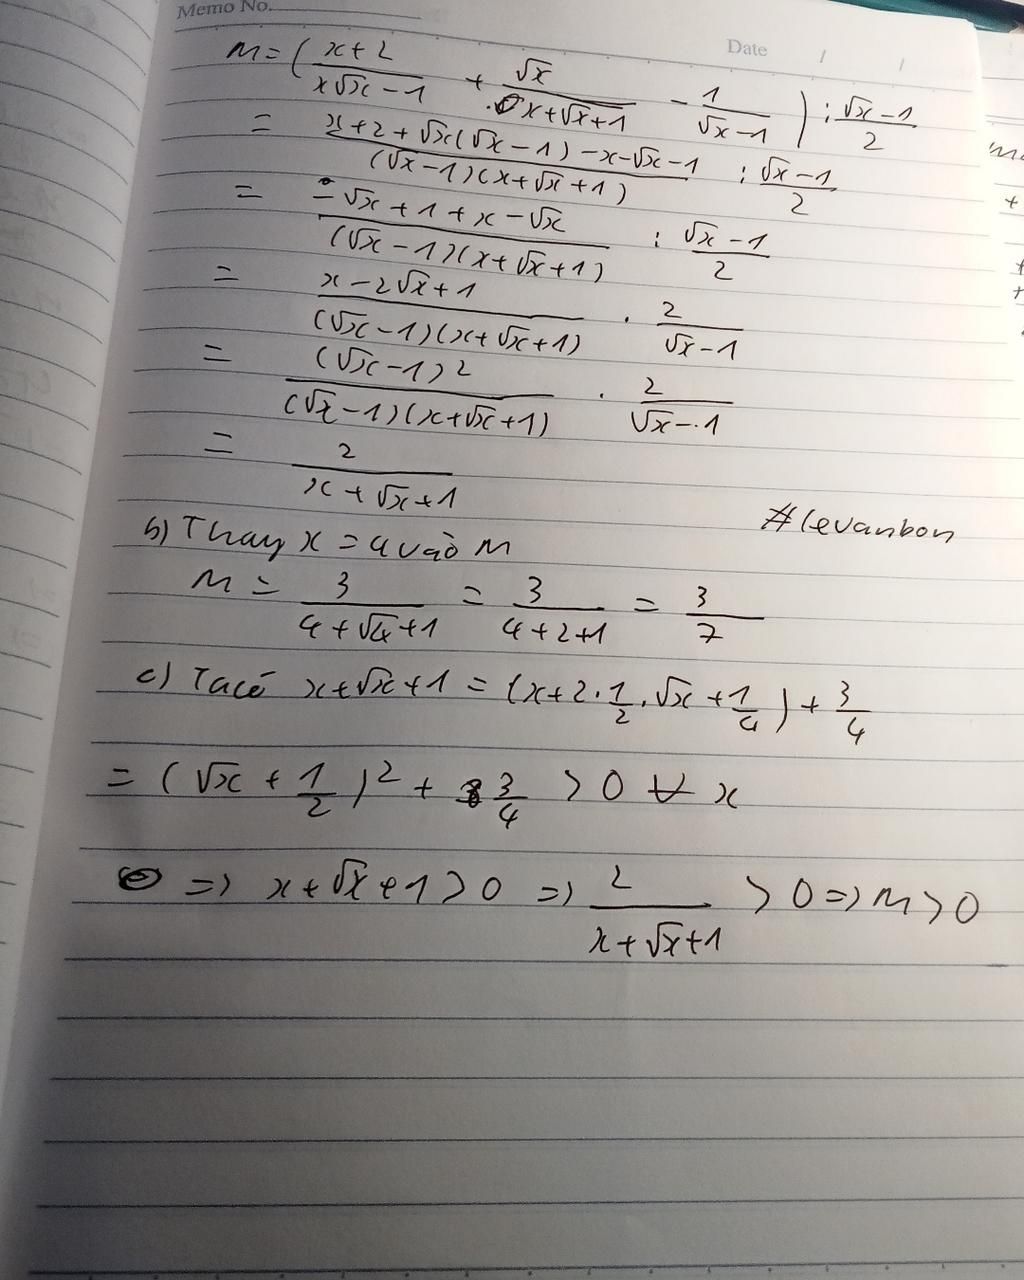 Memo No.
Date / /
M = ( (x+2)/(x√x-1) + √x/(x+√x+1) - 1/(√x-1) ) : (√x-1)/2
= (x+2+√x(√x-1)-x-√x-1)/((√x-1)(x+√x+1)) : (√x-1)/2
= (-√x+1+x-√x)/((√x-1)(x+√x+1)) : (√x-1)/2
= (x-2√x+1)/((√x-1)(x+√x+1)) . 2/(√x-1)
= (√x-1)²/((√x-1)(x+√x+1)) . 2/(√x-1)
= 2/(x+√x+1)
#levanbon
b) Thay x = 4 vào M
M = 3/(4+√4+1) = 3/(4+2+1) = 3/7
c) Ta có x+√x+1 = (x+2.1/2.√x+1/4) + 3/4
= (√x + 1/2)² + 3/4 > 0 ∀ x
=> x+√x+1 > 0 => 2/(x+√x+1) > 0 => M > 0